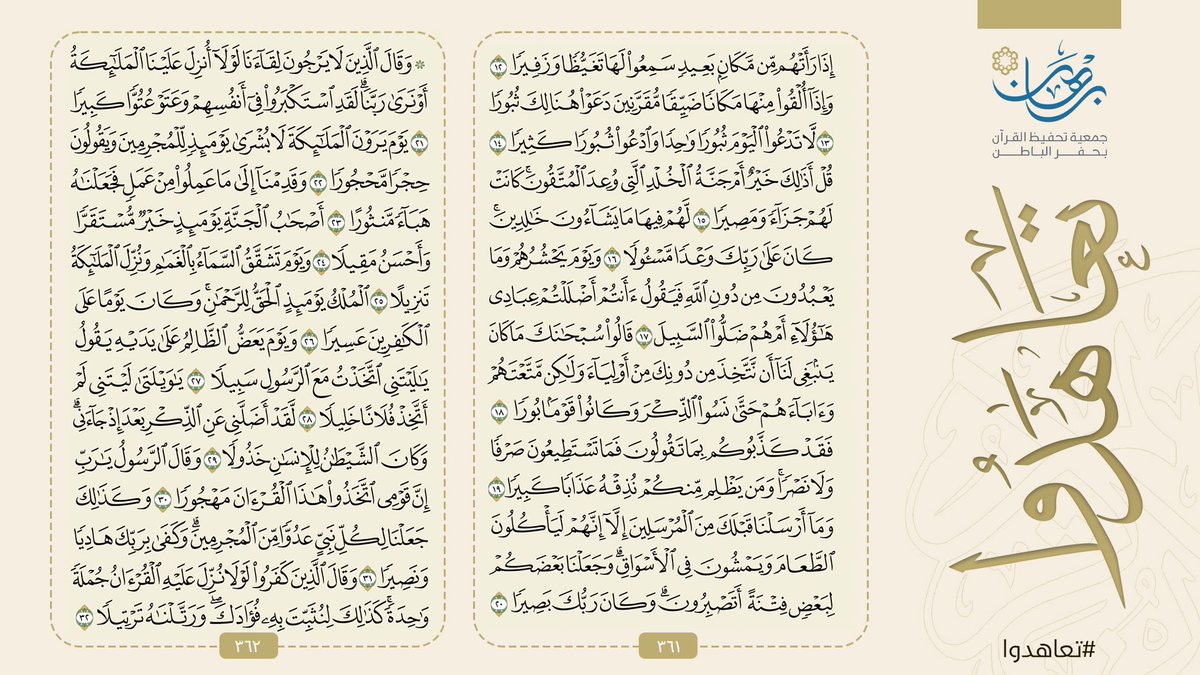 برهان
جمعية تحفيظ القرآن
بحفر الباطن
تعاهدوا
#تعاهدوا
إِذَا رَأَتْهُم مِّن مَّكَانٍ بَعِيدٍ سَمِعُوا۟ لَهَا تَغَيُّظًا وَزَفِيرًا ١٢
وَإِذَآ أُلْقُوا۟ مِنْهَا مَكَانًا ضَيِّقًا مُّقَرَّنِينَ دَعَوْا۟ هُنَالِكَ ثُبُورًا
١٣ لَّا تَدْعُوا۟ ٱلْيَوْمَ ثُبُورًا وَٰحِدًا وَٱدْعُوا۟ ثُبُورًا كَثِيرًا ١٤
قُلْ أَذَٰلِكَ خَيْرٌ أَمْ جَنَّةُ ٱلْخُلْدِ ٱلَّتِى وُعِدَ ٱلْمُتَّقُونَ ۚ كَانَتْ
لَهُمْ جَزَآءً وَمَصِيرًا ١٥ لَّهُمْ فِيهَا مَا يَشَآءُونَ خَٰلِدِينَ ۚ
كَانَ عَلَىٰ رَبِّكَ وَعْدًا مَّسْـُٔولًا ١٦ وَيَوْمَ يَحْشُرُهُمْ وَمَا
يَعْبُدُونَ مِن دُونِ ٱللَّهِ فَيَقُولُ ءَأَنتُمْ أَضْلَلْتُمْ عِبَادِى
هَٰٓؤُلَآءِ أَمْ هُمْ ضَلُّوا۟ ٱلسَّبِيلَ ١٧ قَالُوا۟ سُبْحَٰنَكَ مَا كَانَ
يَنۢبَغِى لَنَآ أَن نَّتَّخِذَ مِن دُونِكَ مِنْ أَوْلِيَآءَ وَلَٰكِن مَّتَّعْتَهُمْ
وَءَابَآءَهُمْ حَتَّىٰ نَسُوا۟ ٱلذِّكْرَ وَكَانُوا۟ قَوْمًۢا بُورًا ١٨
فَقَدْ كَذَّبُوكُم بِمَا تَقُولُونَ فَمَا تَسْتَطِيعُونَ صَرْفًا
وَلَا نَصْرًا ۚ وَمَن يَظْلِم مِّنكُمْ نُذِقْهُ عَذَابًا كَبِيرًا ١٩
وَمَآ أَرْسَلْنَا قَبْلَكَ مِنَ ٱلْمُرْسَلِينَ إِلَّآ إِنَّهُمْ لَيَأْكُلُونَ
ٱلطَّعَامَ وَيَمْشُونَ فِى ٱلْأَسْوَاقِ ۗ وَجَعَلْنَا بَعْضَكُمْ
لِبَعْضٍ فِتْنَةً أَتَصْبِرُونَ ۗ وَكَانَ رَبُّكَ بَصِيرًا ٢٠
٣٦١
۞ وَقَالَ ٱلَّذِينَ لَا يَرْجُونَ لِقَآءَنَا لَوْلَآ أُنزِلَ عَلَيْنَا ٱلْمَلَٰٓئِكَةُ
أَوْ نَرَىٰ رَبَّنَا ۗ لَقَدِ ٱسْتَكْبَرُوا۟ فِىٓ أَنفُسِهِمْ وَعَتَوْ عُتُوًّا كَبِيرًا
٢١ يَوْمَ يَرَوْنَ ٱلْمَلَٰٓئِكَةَ لَا بُشْرَىٰ يَوْمَئِذٍ لِّلْمُجْرِمِينَ وَيَقُولُونَ
حِجْرًا مَّحْجُورًا ٢٢ وَقَدِمْنَآ إِلَىٰ مَا عَمِلُوا۟ مِنْ عَمَلٍ فَجَعَلْنَٰهُ
هَبَآءً مَّنثُورًا ٢٣ أَصْحَٰبُ ٱلْجَنَّةِ يَوْمَئِذٍ خَيْرٌ مُّسْتَقَرًّا
وَأَحْسَنُ مَقِيلًا ٢٤ وَيَوْمَ تَشَقَّقُ ٱلسَّمَآءُ بِٱلْغَمَٰمِ وَنُزِّلَ ٱلْمَلَٰٓئِكَةُ
تَنزِيلًا ٢٥ ٱلْمُلْكُ يَوْمَئِذٍ ٱلْحَقُّ لِلرَّحْمَٰنِ ۚ وَكَانَ يَوْمًا عَلَى
ٱلْكَٰفِرِينَ عَسِيرًا ٢٦ وَيَوْمَ يَعَضُّ ٱلظَّالِمُ عَلَىٰ يَدَيْهِ يَقُولُ
يَٰلَيْتَنِى ٱتَّخَذْتُ مَعَ ٱلرَّسُولِ سَبِيلًا ٢٧ يَٰوَيْلَتَىٰ لَيْتَنِى لَمْ
أَتَّخِذْ فُلَانًا خَلِيلًا ٢٨ لَّقَدْ أَضَلَّنِى عَنِ ٱلذِّكْرِ بَعْدَ إِذْ جَآءَنِى ۗ
وَكَانَ ٱلشَّيْطَٰنُ لِلْإِنسَٰنِ خَذُولًا ٢٩ وَقَالَ ٱلرَّسُولُ يَٰرَبِّ
إِنَّ قَوْمِى ٱتَّخَذُوا۟ هَٰذَا ٱلْقُرْءَانَ مَهْجُورًا ٣٠ وَكَذَٰلِكَ
جَعَلْنَا لِكُلِّ نَبِىٍّ عَدُوًّا مِّنَ ٱلْمُجْرِمِينَ ۗ وَكَفَىٰ بِرَبِّكَ هَادِيًا
وَنَصِيرًا ٣١ وَقَالَ ٱلَّذِينَ كَفَرُوا۟ لَوْلَا نُزِّلَ عَلَيْهِ ٱلْقُرْءَانُ جُمْلَةً
وَٰحِدَةً ۚ كَذَٰلِكَ لِنُثَبِّتَ بِهِۦ فُؤَادَكَ ۖ وَرَتَّلْنَٰهُ تَرْتِيلًا ٣٢
٣٦٢